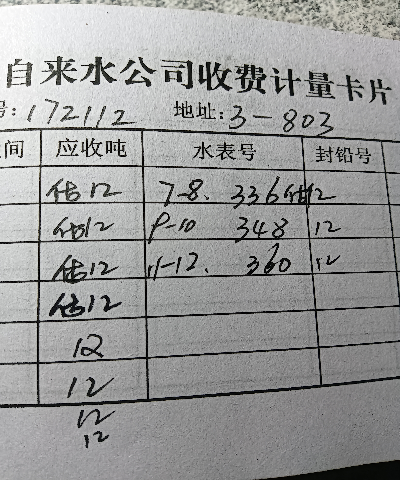 自来水公司收费计量卡片
号:172112 地址:3-803
间 应收吨 水表号 封铅号
估12 7-8. 336 估12
估12 9-10 348 12
估12 11-12. 360 12
估12
12
12
12
12